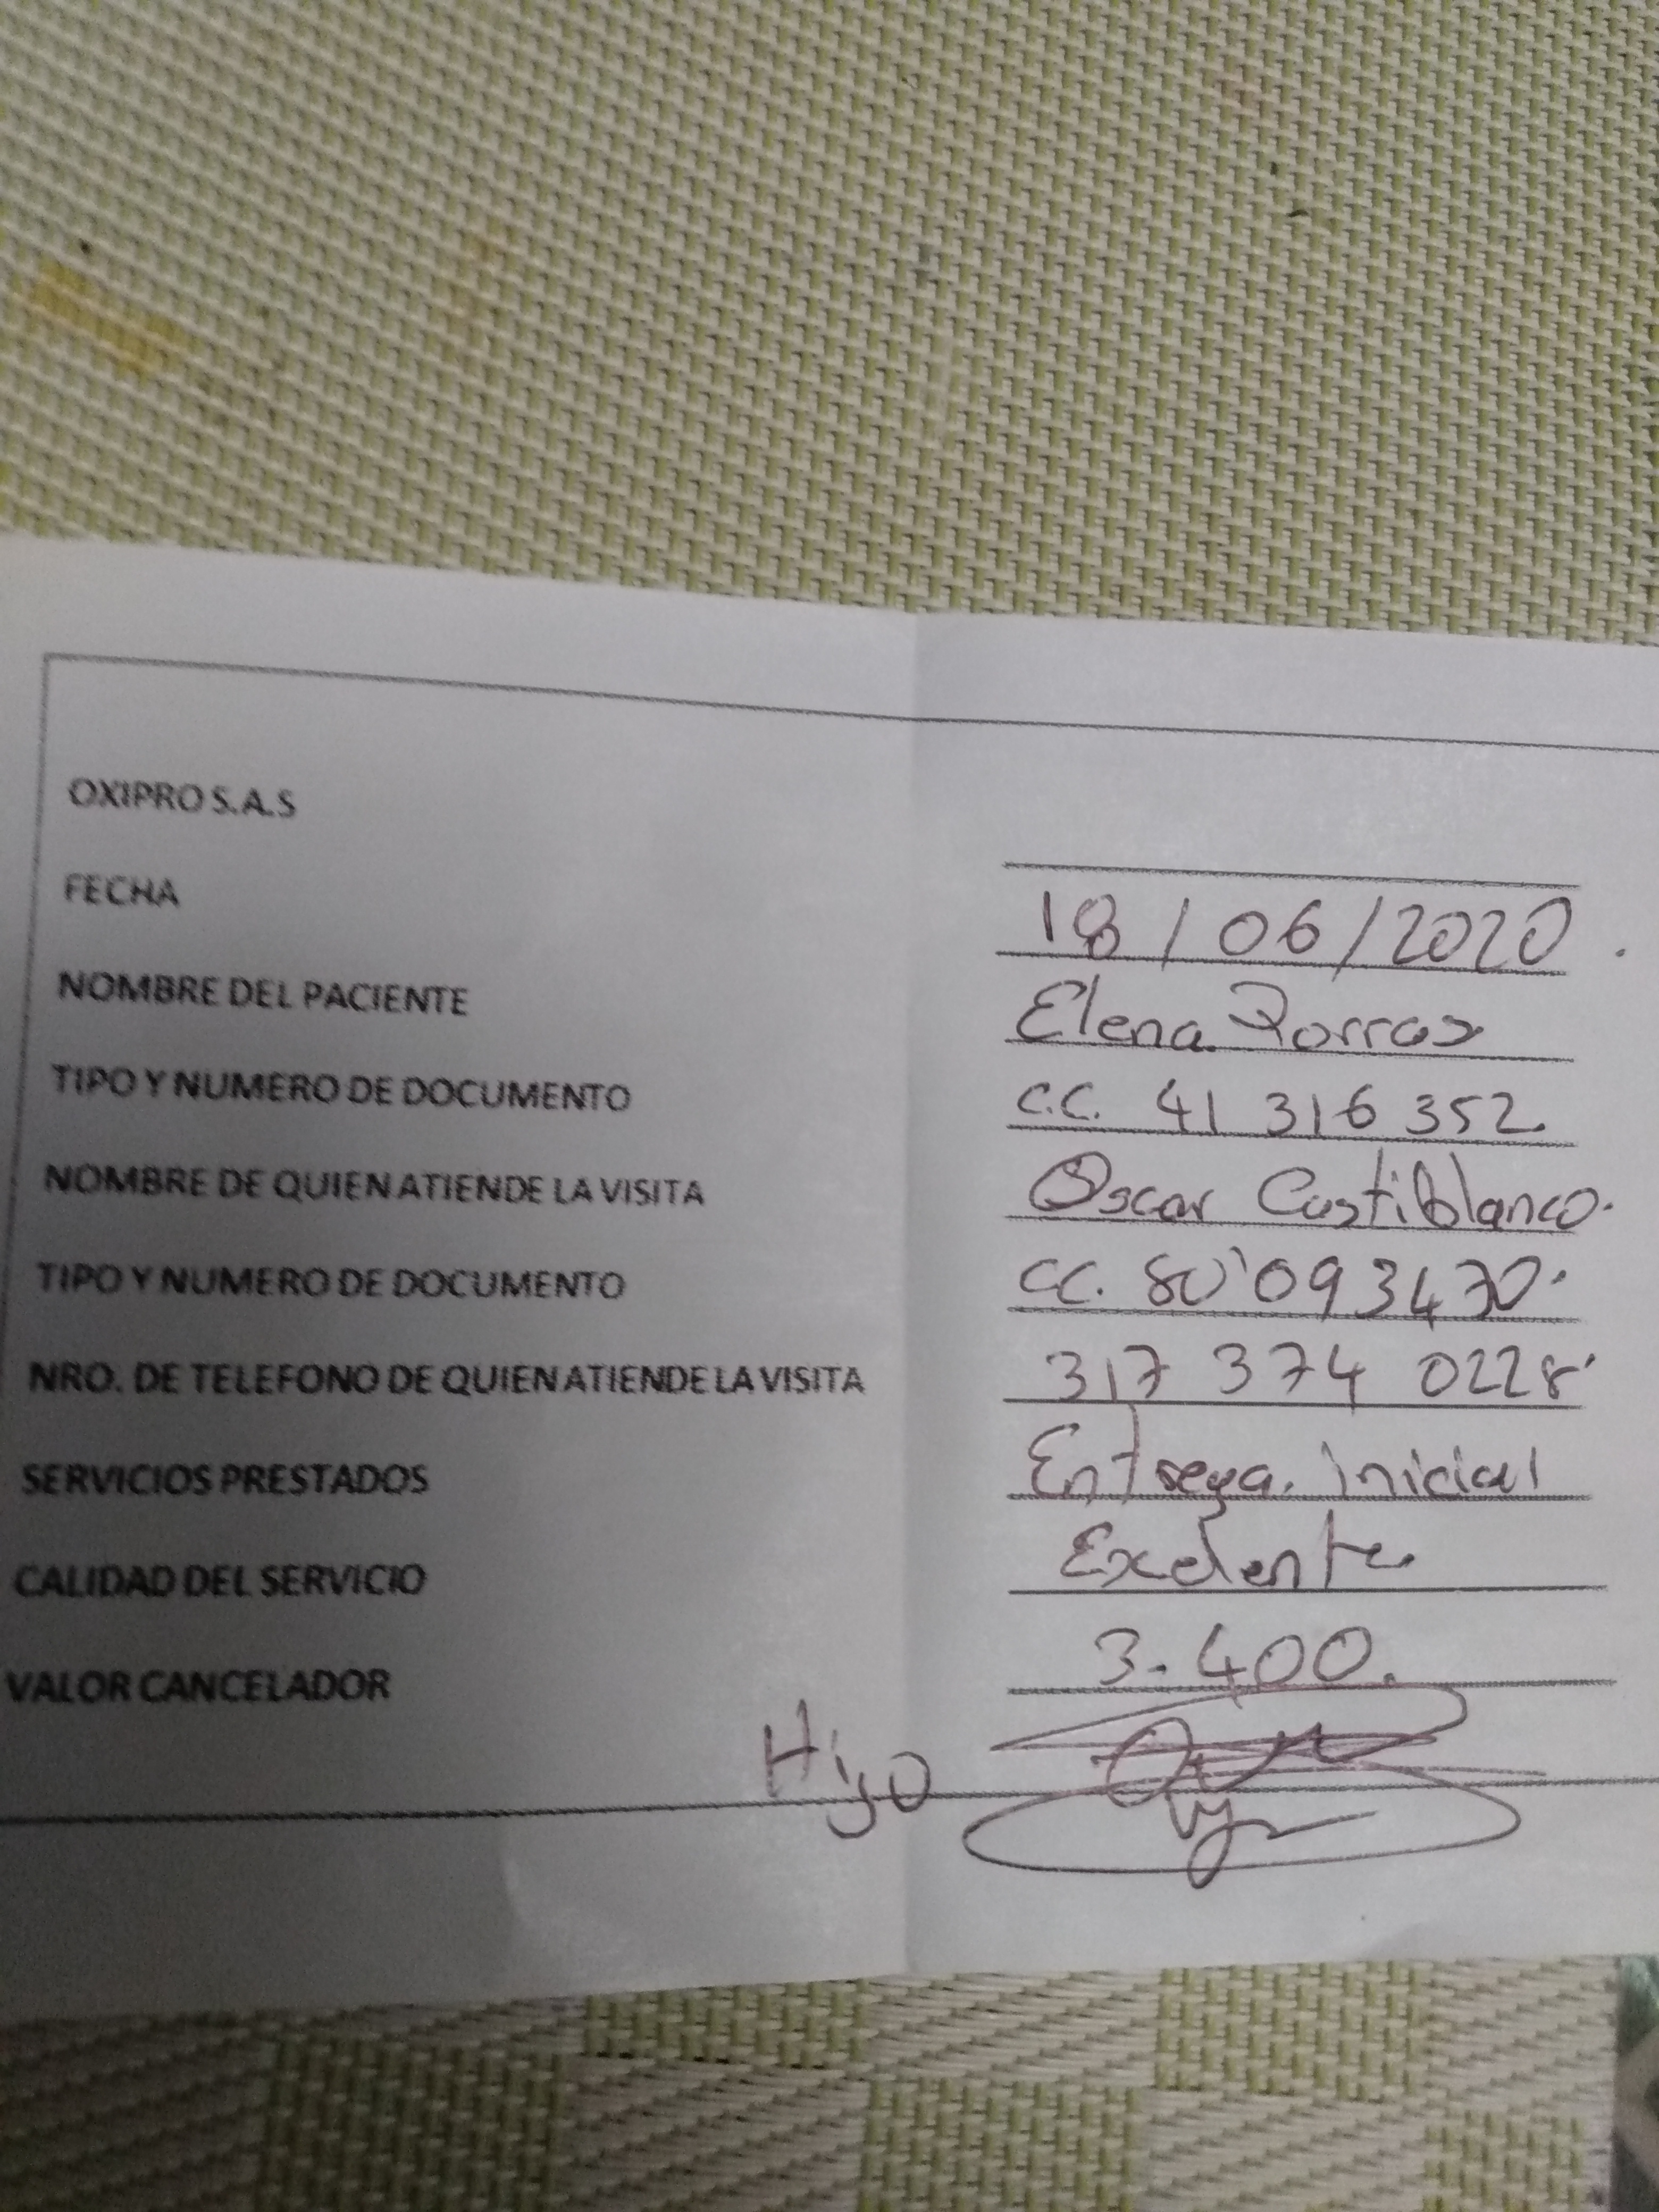 OXIPRO S.A.S
FECHA 18/06/2020.
NOMBRE DEL PACIENTE Elena Porras
TIPO Y NUMERO DE DOCUMENTO C.C. 41 316 352.
NOMBRE DE QUIEN ATIENDE LA VISITA Oscar Castiblanco.
TIPO Y NUMERO DE DOCUMENTO CC. 80'093470.
NRO. DE TELEFONO DE QUIEN ATIENDE LA VISITA 317 374 0228
SERVICIOS PRESTADOS Entrega inicial
CALIDAD DEL SERVICIO Exelente
VALOR CANCELADOR 3.400.
Hijo